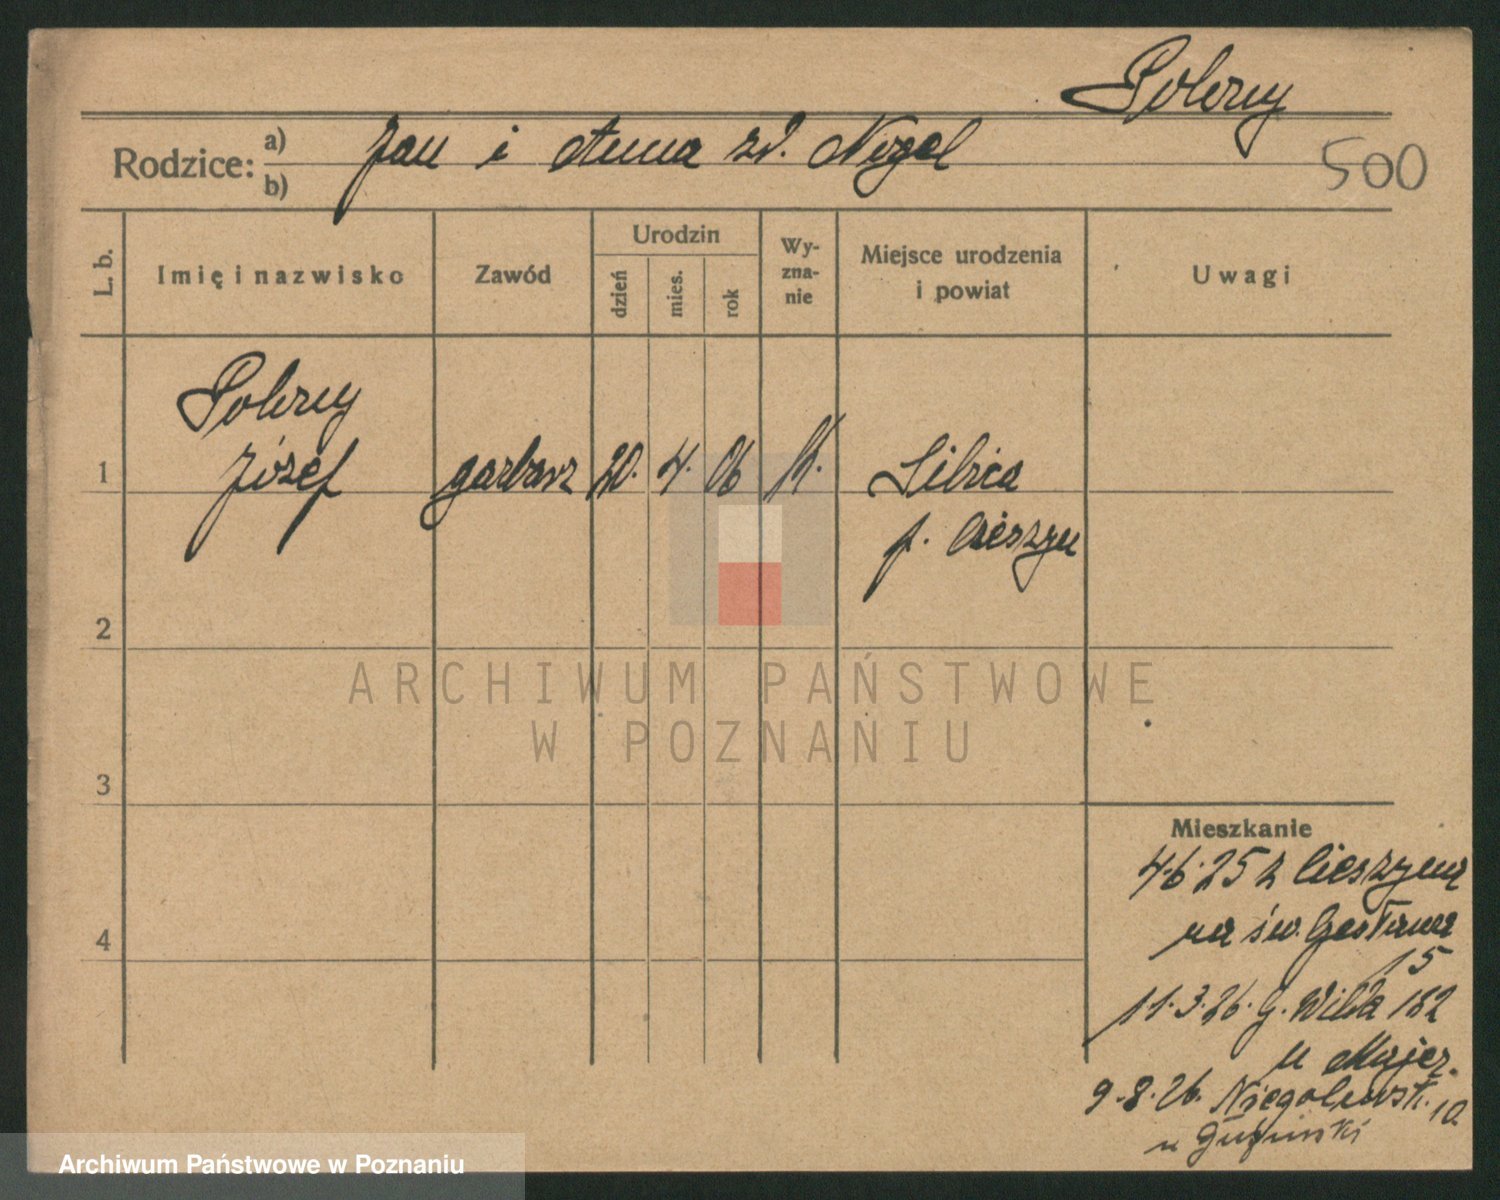 Pobzuy
Rodzice: a) Jan i Anna zd. Nogol
b)
500
L. b.
Imię i nazwisko
Zawód
Urodzin
dzień
mies.
rok
Wy-
zna-
nie
Miejsce urodzenia
i powiat
Uwagi
1
Józef
garbarz
20. 4. 06
k.
Sibica
p. Cieszyn
2
3
4
Mieszkanie
4.6.25 z Cieszyna
na św.
15
11.3.26. G. Wilda 182
u Majer.
9.8.26. Niegolewski. 10
u
ARCHIWUM PAŃSTWOWE
W POZNANIU
Archiwum Państwowe w Poznaniu